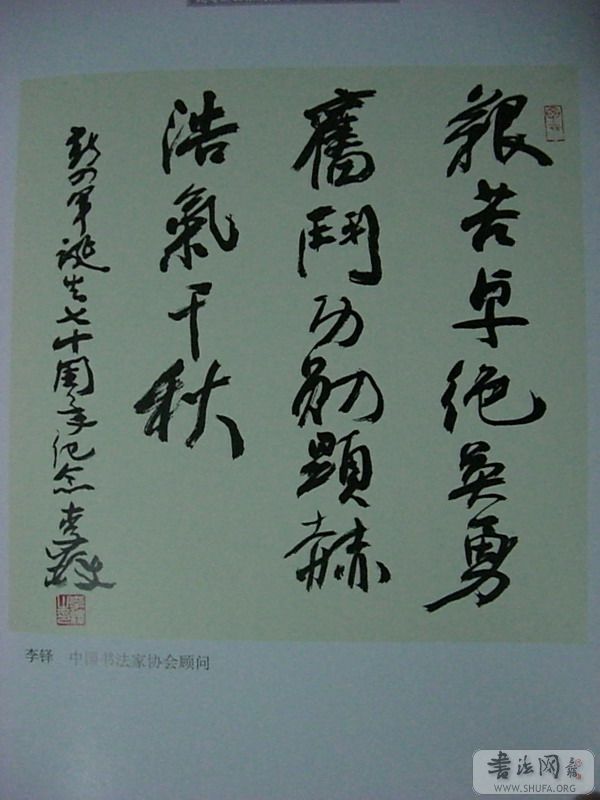 艱苦卓绝英勇
奮鬥功勋顯赫
浩氣千秋
新四军诞生七十周年纪念 李铎
李铎 中国书法家协会顾问
书法网
WWW.SHUFA.ORG